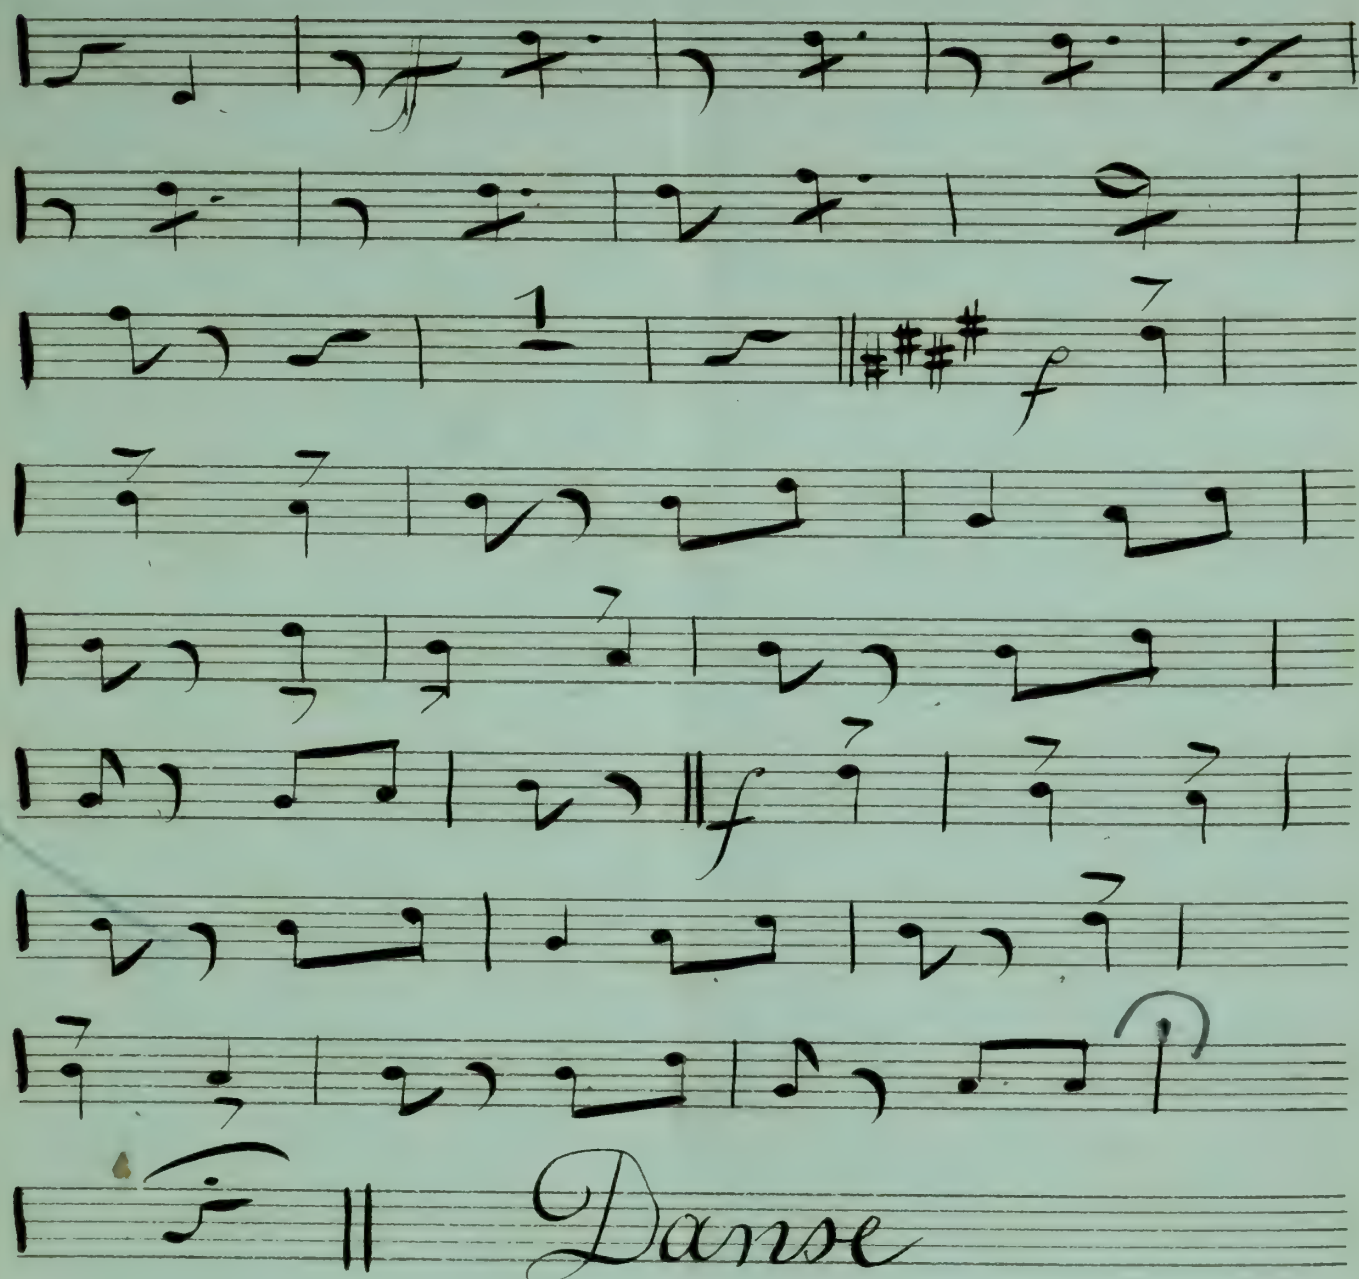 1
f
f
Danse